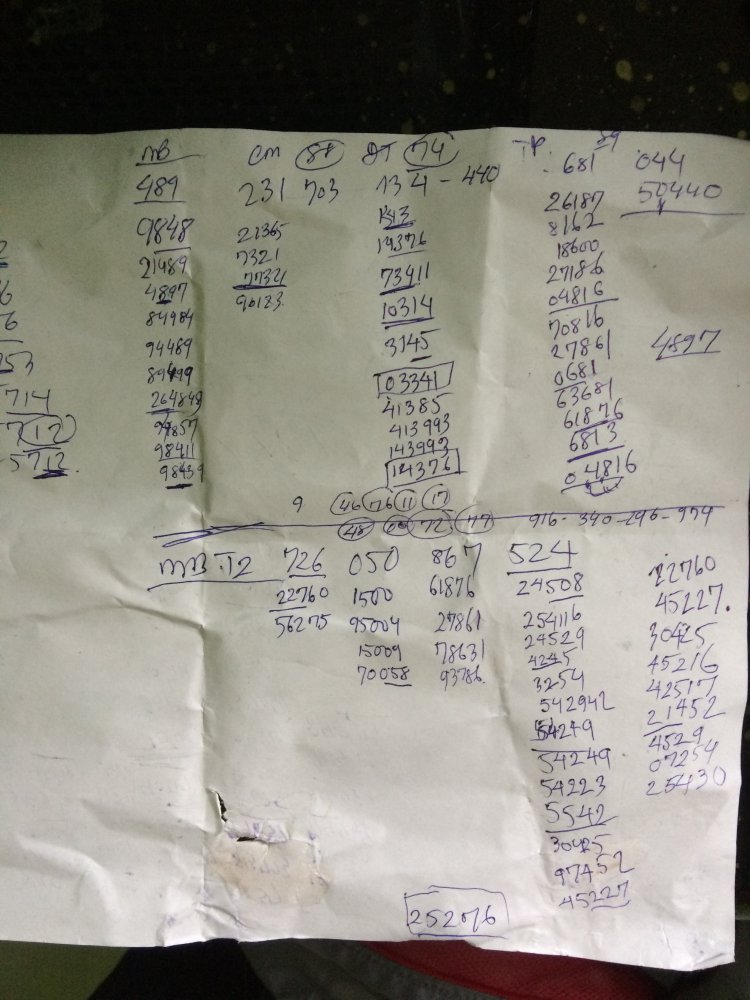 MB
489
9848
21489
4897
84984
94489
89499
264849
98411
98439
CM 81
231 703
21365
7321
77321
90123
DT 74
134 - 440
143
14376
73411
10314
3145
03341
41385
413993
143993
14376
TP. 89
681
26187
8162
18600
27186
04816
70816
27861
0681
63681
61876
6813
04816
044
50440
4897
53
714
712
5712.
9 46 76 11 17
48 72 77
916 - 340 - 296 - 974
MB.T2
726
22760
56275
050
1500
95004
15009
70058
867
61876
27861
78631
93786.
524
24508
254116
24529
4245
3254
542942
54249
54249
54223
5542
30425
97452
45227
22760
45227.
30425
45216
42517
21452
4529
07254
25430
25276